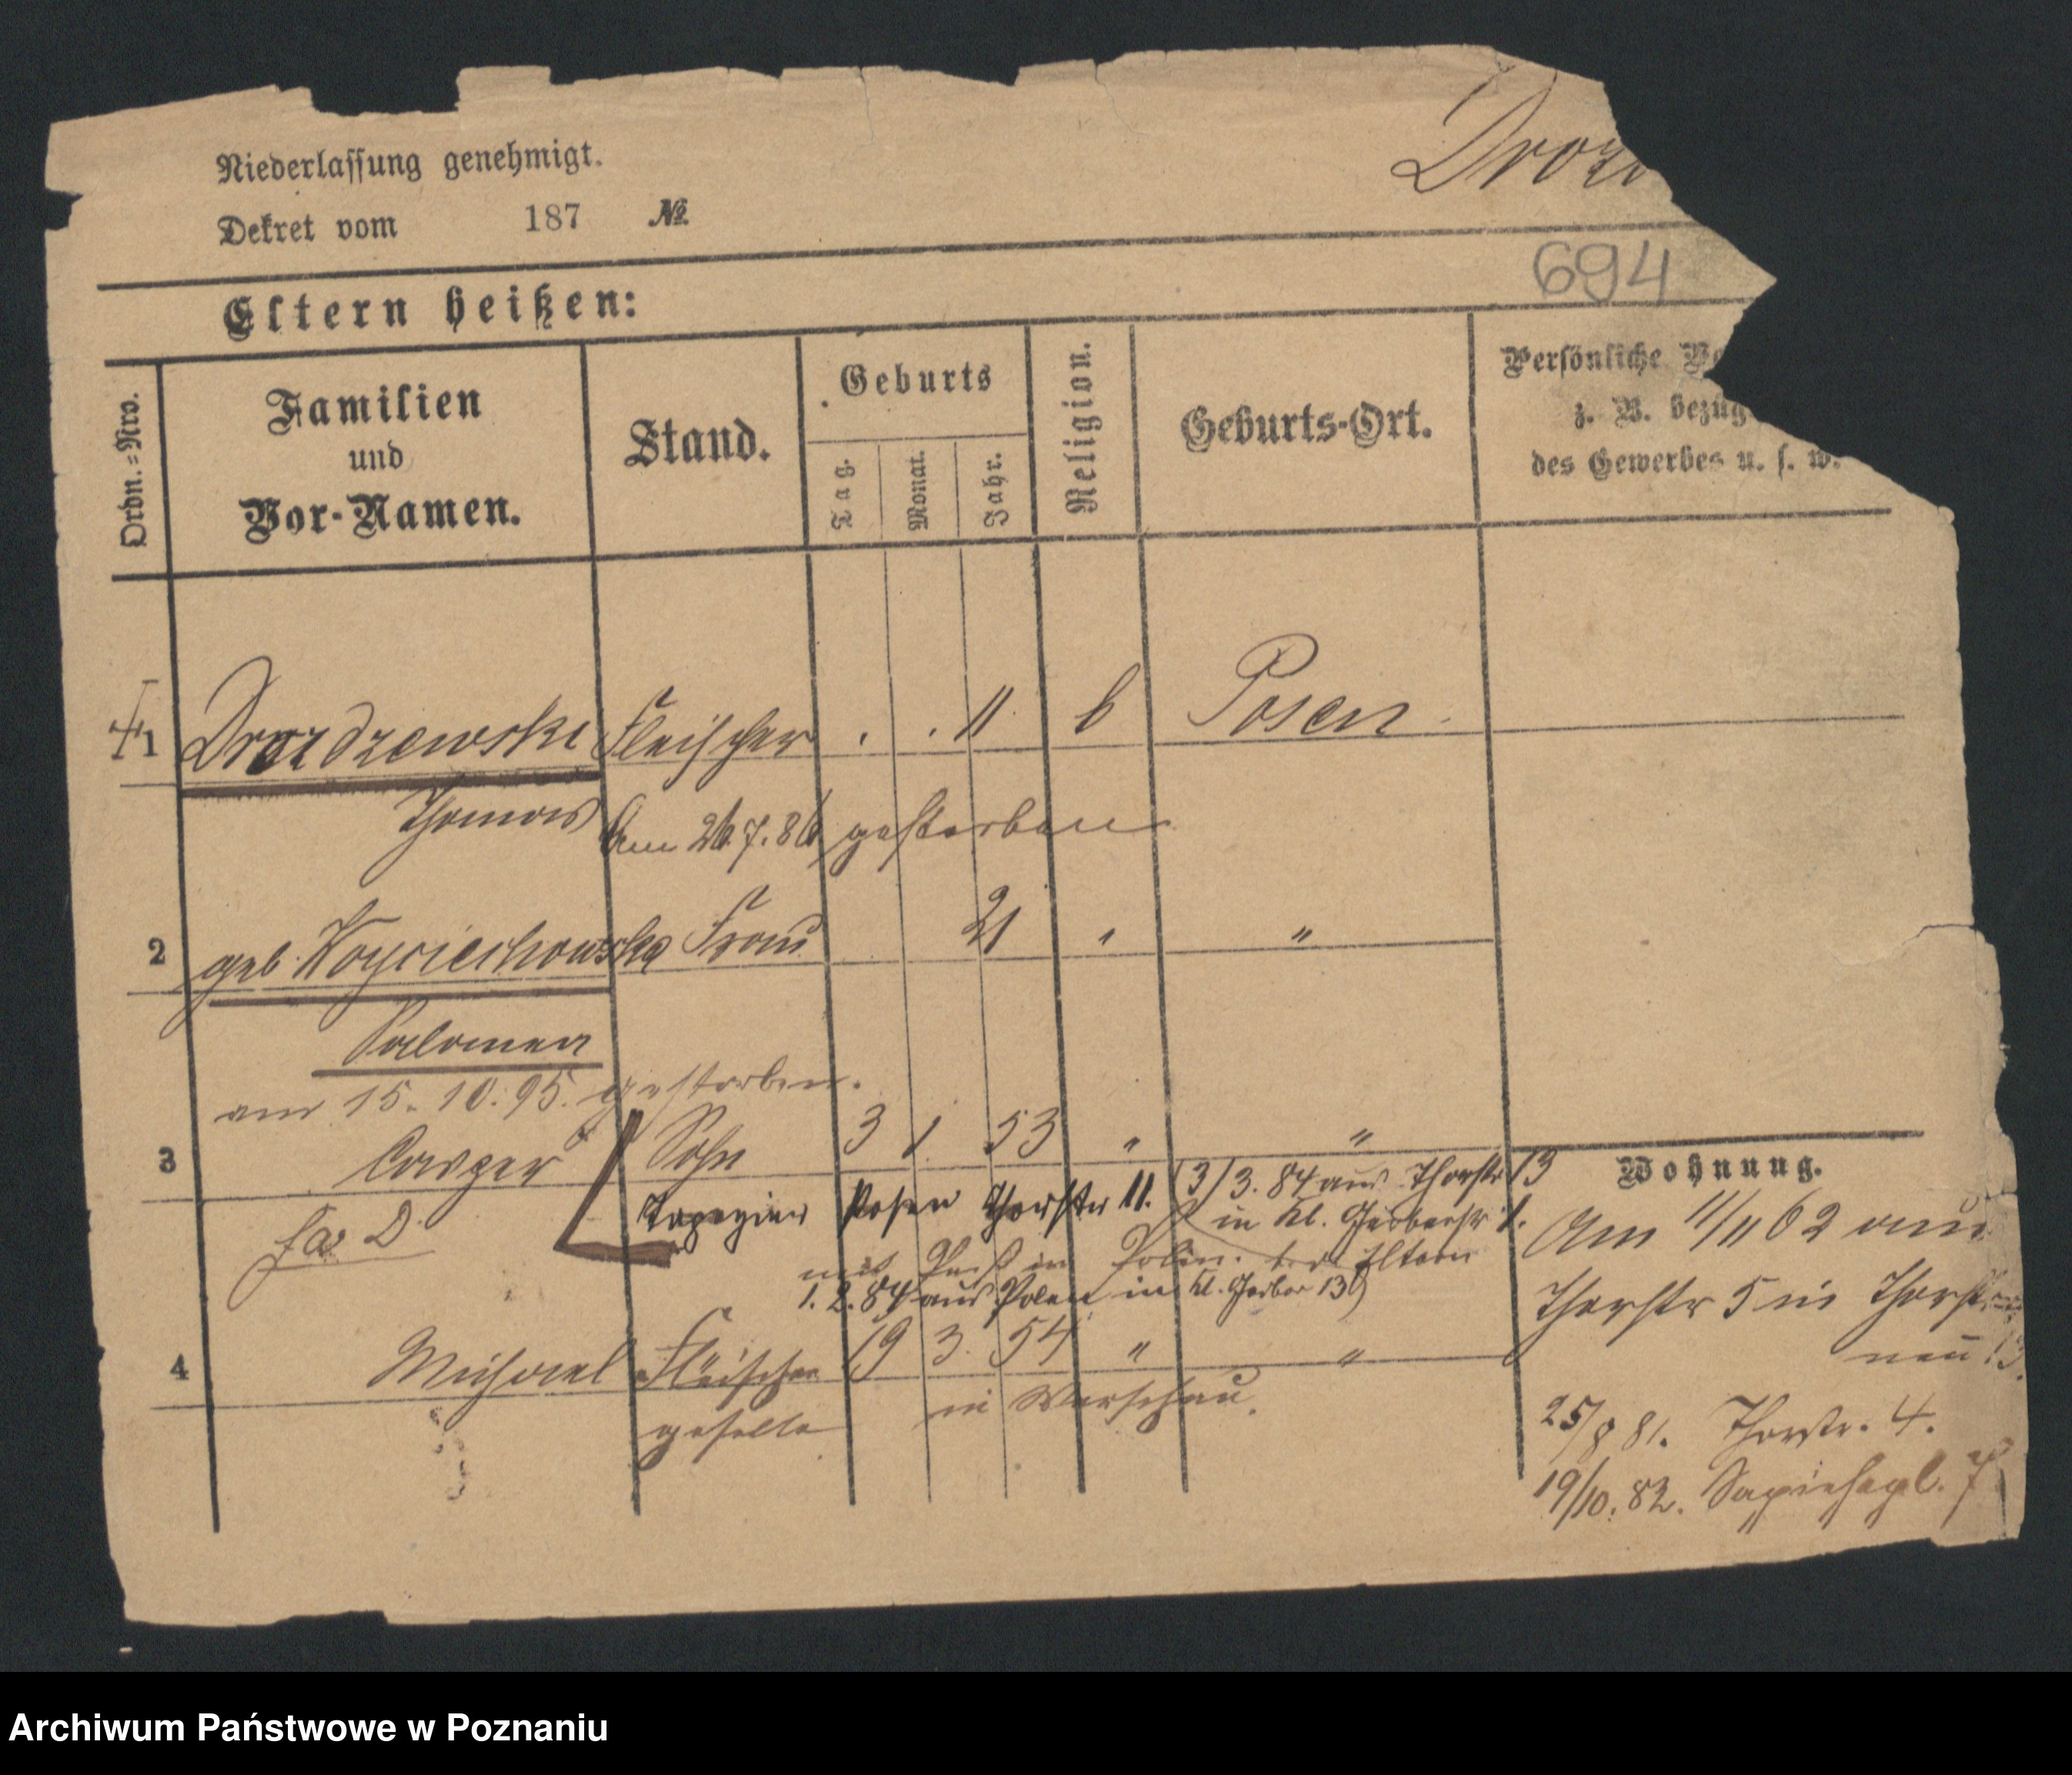 Niederlassung genehmigt.
Dekret vom 187 №
Droz
694
Eltern heißen:
Ordn.-Nro.
Familien
und
Vor-Namen.
Stand.
Geburts
Tag.
Monat.
Jahr.
Religion.
Geburts-Ort.
Persönliche
z. B. bezüg
des Gewerbes u. s. w.
1 Drozdzewski Fleischer . . 11 k Posen
Thomas Am 26.7.86 gestorben
2 geb. Woyciechowska Frau 21 " "
Salomea
am 15.10.95. gestorben.
3 Casper Sohn 3 1 53 " "
Tapezier Posen Thorstr 11. 3/3.84 aus Thorstr 13
in kl. Gerberstr 1.
fa D
in Polen Eltern
1.2.84 aus Polen in kl. Gerber 13
4 Michael Fleischer 19 3. 54 " "
geselle in Warschau.
Wohnung.
Am 11/11 62 aus
Thorstr 5 in
neu 13.
25/8 81. Thorstr. 4.
19/10.82. Sapiehapl. 7
Archiwum Państwowe w Poznaniu